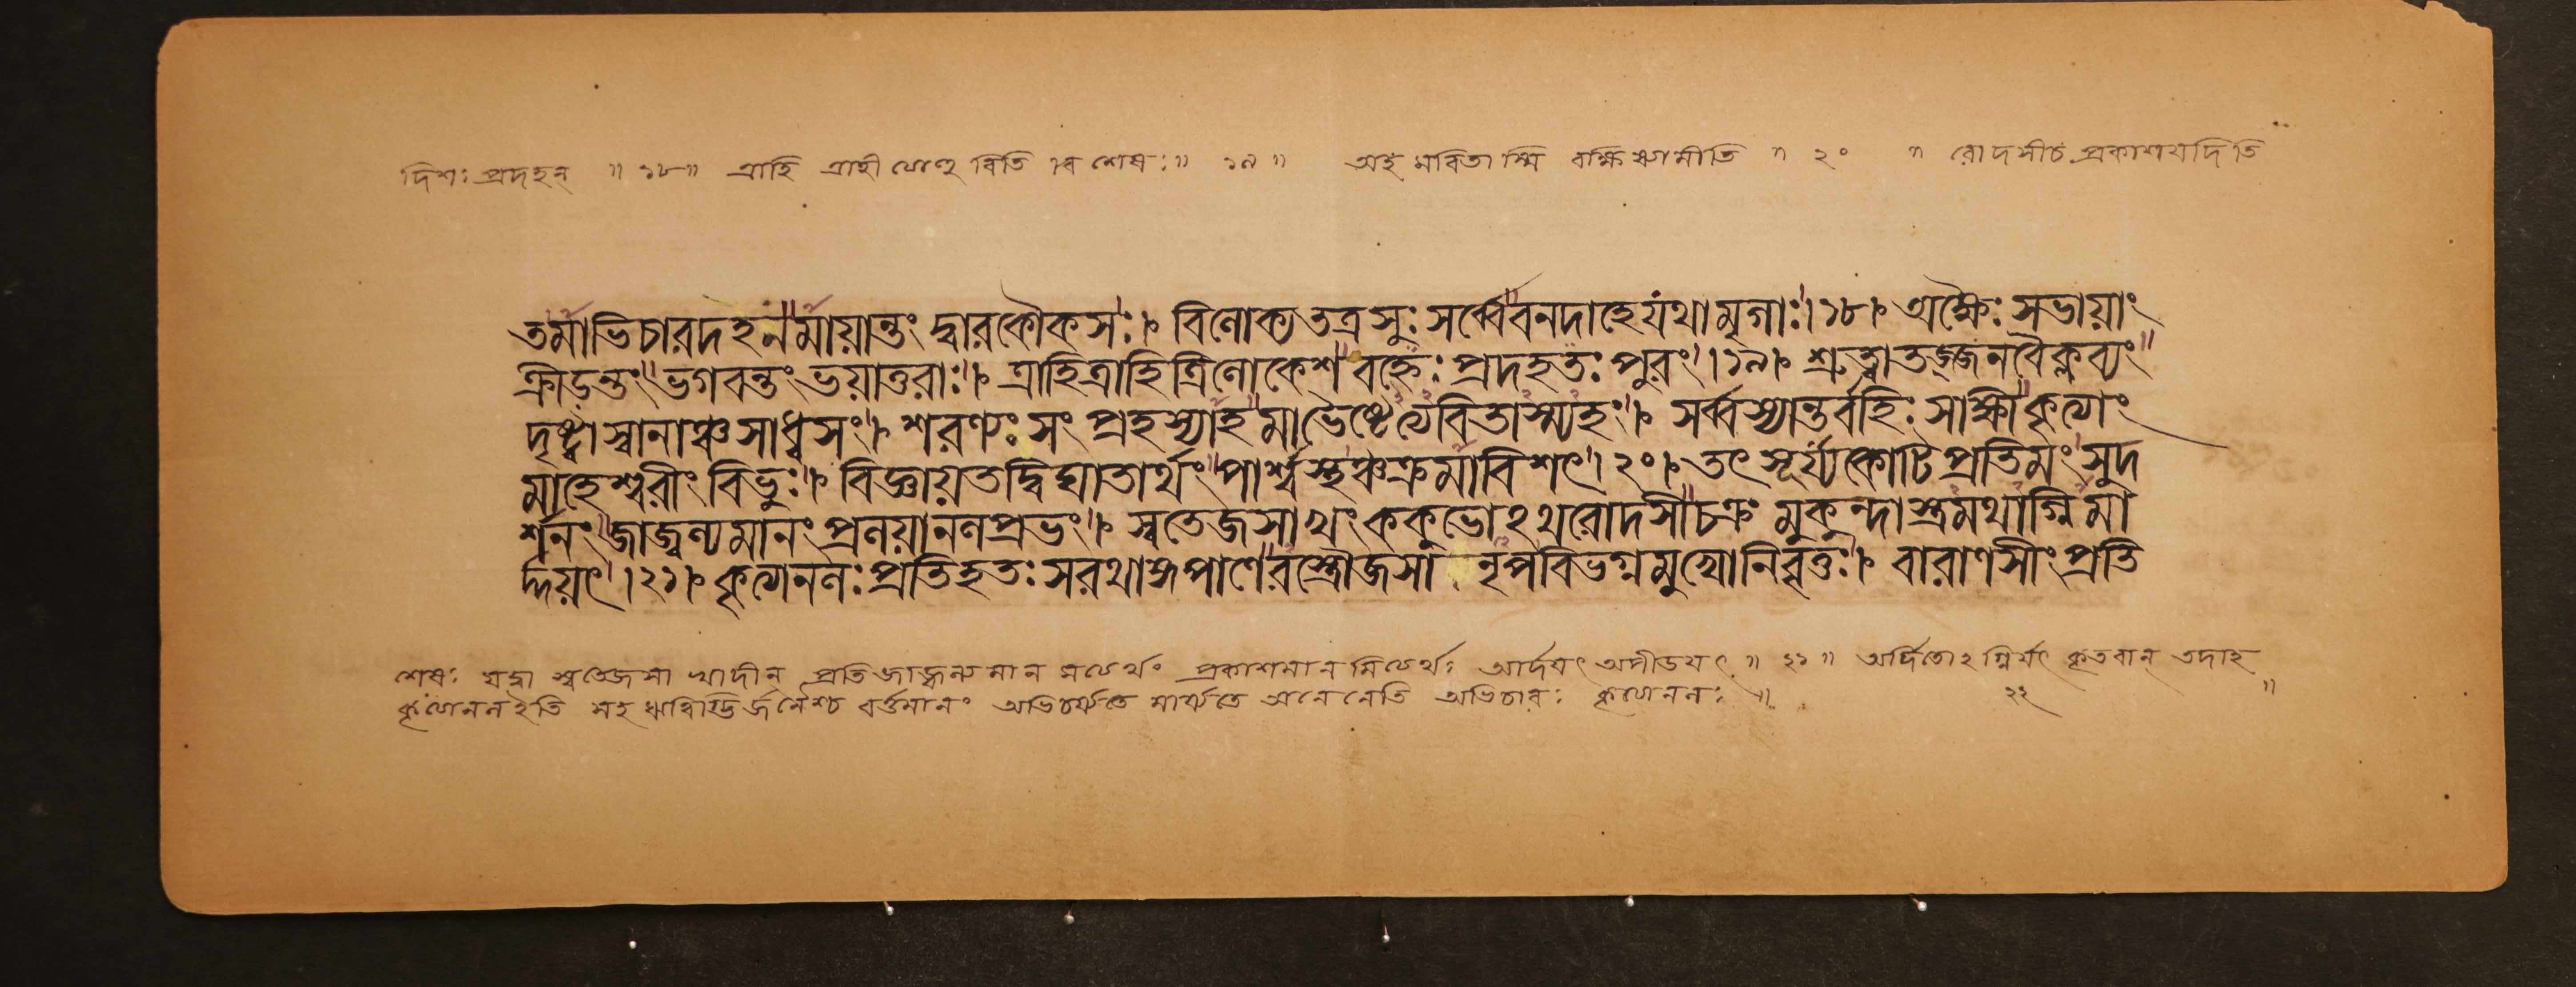 দিশঃ প্রদহন্ ॥ ১৮ ॥ ত্রাহি ত্রাহীত্যেণ্ড বিতি শেষঃ ॥ ১৯ ॥ অহমবিতাস্মি রক্ষিষ্যামীতি ॥ ২০ ॥ রোদসীচ প্রকাশযদিতি
তমাভিচারদহনমায়ান্তং দ্বারকৌকসঃ। বিলোক্যতত্রসুঃ সর্ব্বেবনদাহেযথামৃগাঃ।১৮। অক্ষৈঃ সভায়াং
ক্রীড়ন্তং ভগবন্তং ভয়াতুরাঃ। ত্রাহিত্রাহিত্রিলোকেশ বহ্নেঃ প্রদহতঃ পুরং।১৯। শ্রুত্বাতজ্জনবৈক্লব্যং
দৃষ্ট্বাস্বানাঞ্চসাধ্বসং। শরণ্যঃ সং প্রহস্যাহ মাভৈষ্টেত্যবিতাস্ম্যহং। সর্ব্বস্যান্তর্বহিঃ সাক্ষীকৃত্যাং
মাহেশ্বরীং বিভুঃ। বিজ্ঞায়তদ্বিঘাতার্থং পার্শ্বস্থঞ্চক্রমাবিশৎ।২০। তৎ সূর্য্যকোটিপ্রতিমং সুদ
র্শনং জাজ্বল্যমানং প্রলয়ানলপ্রভং। স্বতেজসাখং ককুভোঽথরোদসীচক্রং মুকুন্দাস্ত্রমথাগ্নিমা
র্দ্দয়ৎ।২১। কৃত্যানলঃ প্রতিহতঃ সরথাঙ্গপাণেরস্ত্রৌজসা নৃপবিভগ্নমুখোনিবৃত্তঃ। বারাণসীং প্রতি
শেষঃ যদ্বা স্বতেজসা খাদীন্ প্রতি জাজ্বল্যমান মত্যর্থং প্রকাশমান মিত্যর্থঃ আর্দযৎ অপীডযৎ ॥ ২১ ॥ অর্দিতোঽগ্নির্যৎ কৃতবান্ তদাহ
কৃত্যেনল ইতি সহ ঋত্বিগ্ভির্জনৈশ্চ বর্ত্তমানং অভিচর্য্যতে মার্য্যতে অনেনেতি অভিচারঃ কৃত্যেনলঃ ॥ ২২ ॥